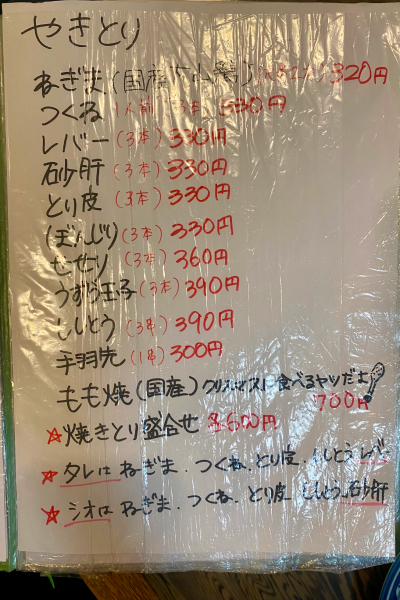 やきとり
ねぎま(国産 320円
つくね 1人前 3本 330円
レバー(3本)330円
砂肝(3本)330円
とり皮(3本)330円
ぼんじり(3本)330円
せせり(3本)360円
うずら玉子(3本)390円
ししとう(3串)390円
手羽先(1串)300円
もも焼(国産)クリスマスに食べるヤツだよ!
700円
☆焼きとり盛合せ 600円
☆タレは ねぎま.つくね.とり皮.ししとう レバー
☆シオは ねぎま.つくね.とり皮 ししとう.石砂肝